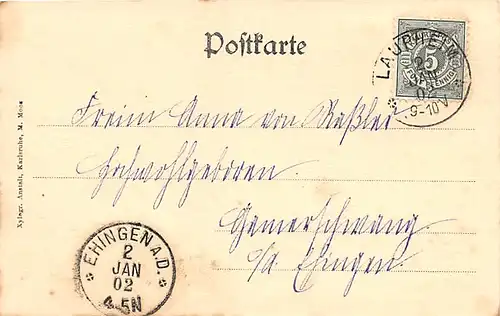 Postkarte
LAUPHEIM
2
JAN
02
9-10 V
5
Freiin Anna von Raßler
Hochwohlgeboren
Gamerschwang
o/A Ehingen.
EHINGEN A.D.
2
JAN
02
4-5N
Xylogr. Anstalt, Karlsruhe, M. Moos